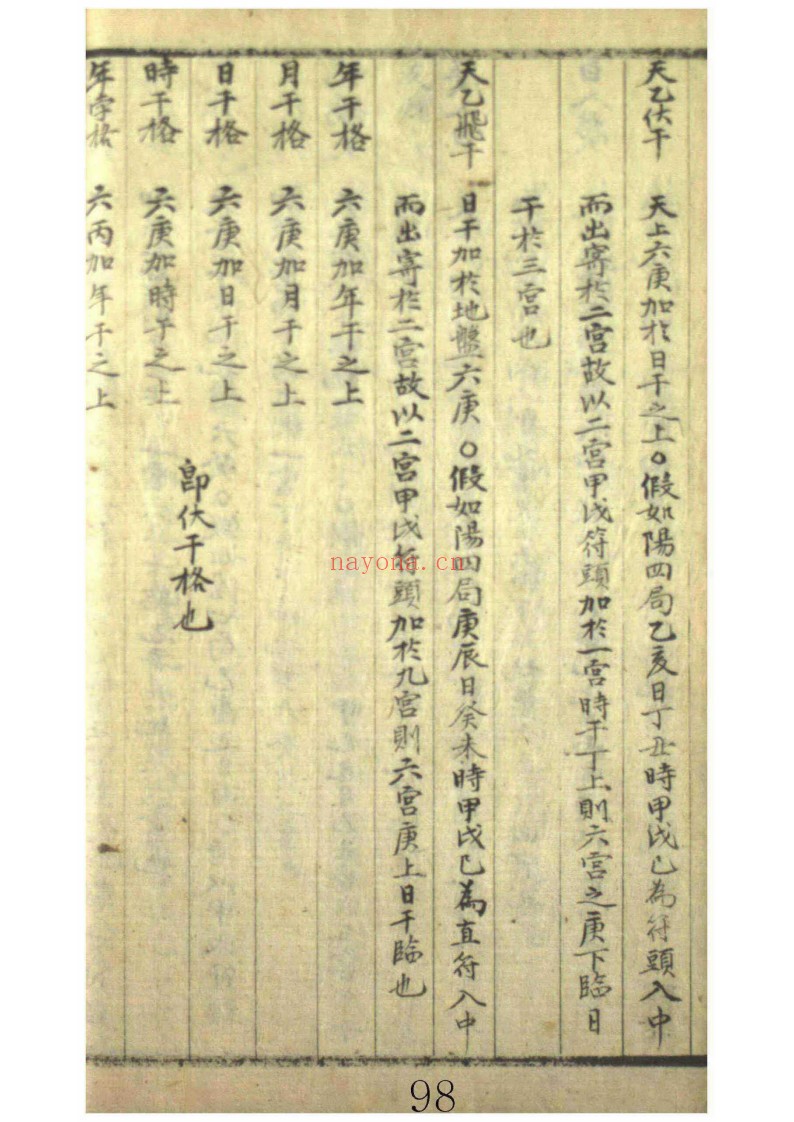 天乙伏干　天上六庚加於日干之上〇假如陽四局乙亥日丁丑時甲戌已為符頭入中
而出寄於二宮故以二宮甲戌符頭加於一宮時干丁上則六宮之庚下臨日
干於三宮也
天乙飛干　日干加於地盤六庚〇假如陽四局庚辰日癸未時甲戌已為直符入中
而出寄於二宮故以二宮甲戌符頭加於九宮則六宮庚上日干臨也
年干格　六庚加年干之上
月干格　六庚加月干之上
日干格　六庚加日干之上　即伏干格也
時干格　六庚加時干之上
年孛格　六丙加年干之上
nayona.cn
98